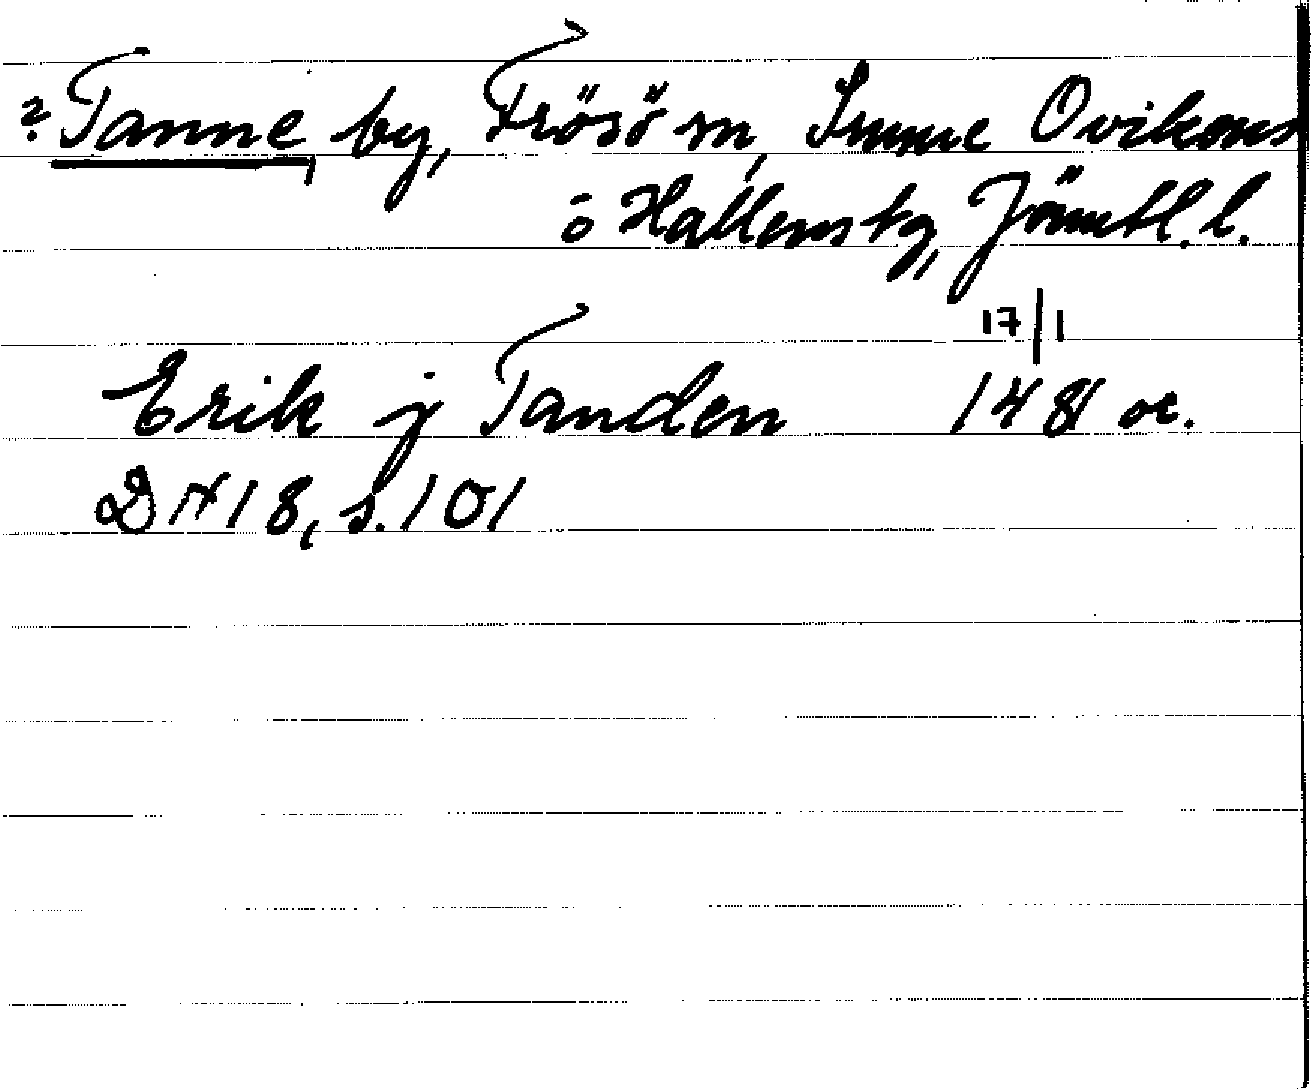 ? Tanne by, Frösö sn, Sunne Ovikens
o Hallens tg, Jämtl. l.
17/1
Erik j Tanden 1481 or.
DN 18, s. 101